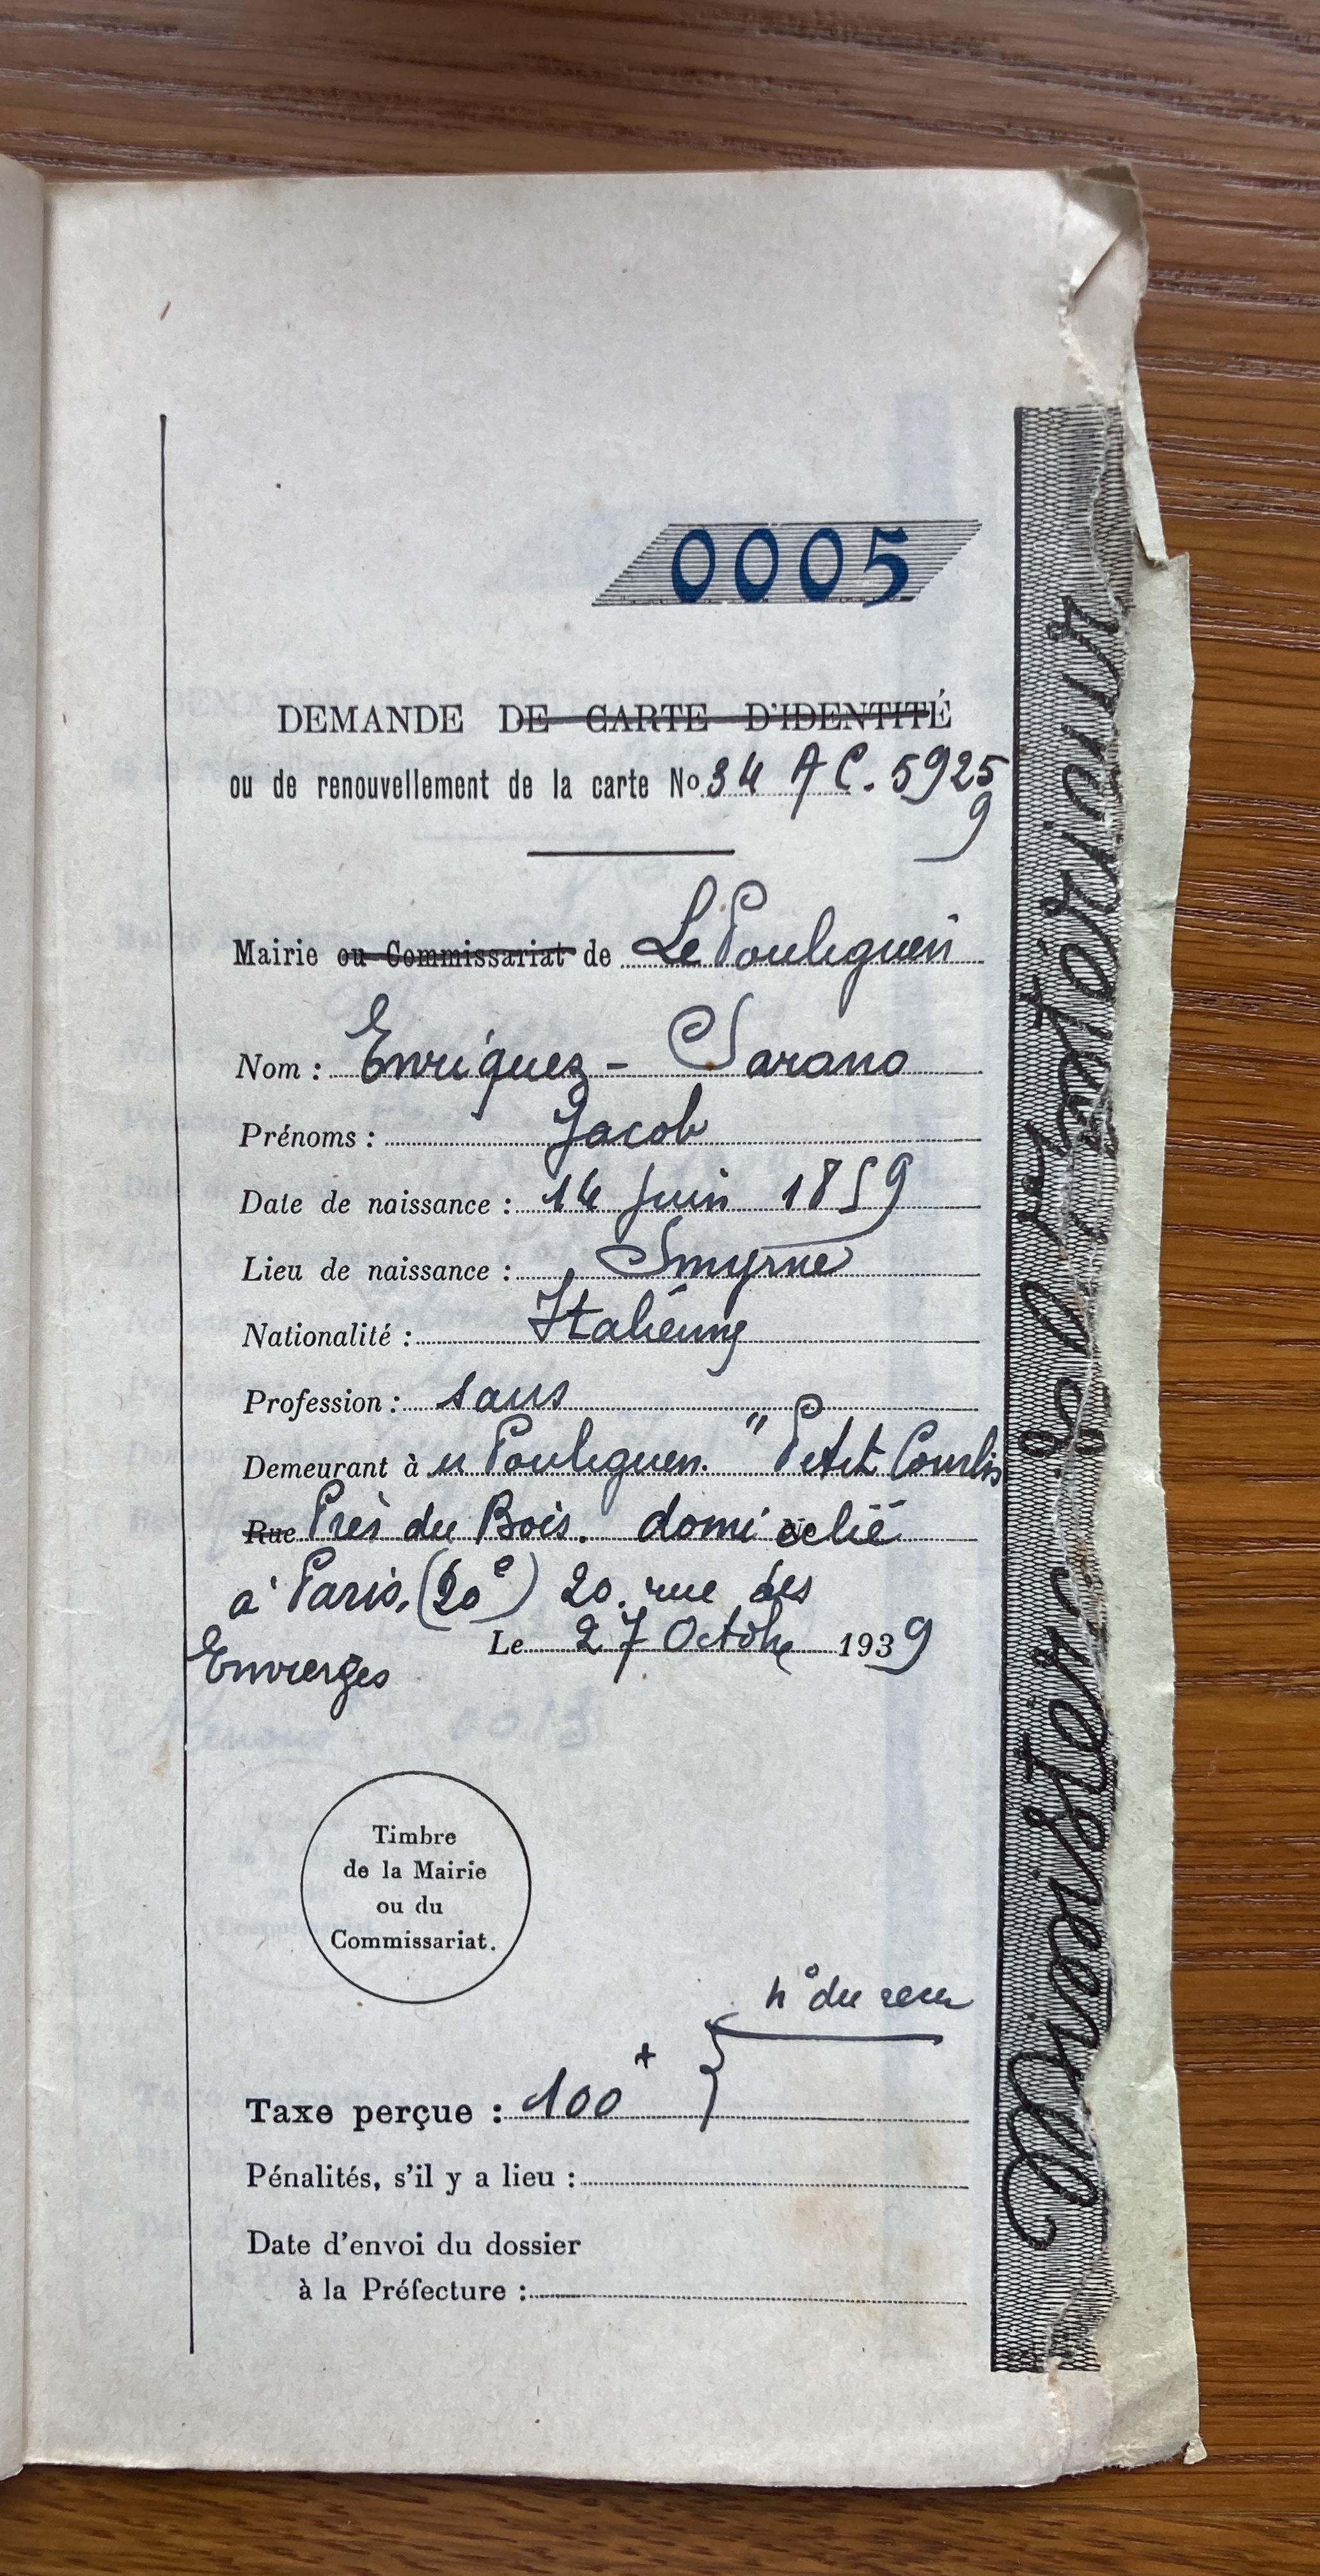 0005
DEMANDE DE CARTE D'IDENTITÉ
ou de renouvellement de la carte No 34 AC. 5925
9
Mairie ou Commissariat de Le Pouliguen
Nom : Enriquez - Sarano
Prénoms : Jacob
Date de naissance : 14 Juin 1859
Lieu de naissance : Smyrne
Nationalité : Italienne
Profession : sans
Demeurant à u Pouliguen. " Petit Courlis
Rue Près du Bois. domicilié
à Paris. (20e) 20. rue des
Envierges
Le 27 Octobre 1939
Timbre
de la Mairie
ou du
Commissariat.
n° du
Taxe perçue : 100
Pénalités, s'il y a lieu :
Date d'envoi du dossier
à la Préfecture :
Ministère de l'Intérieur